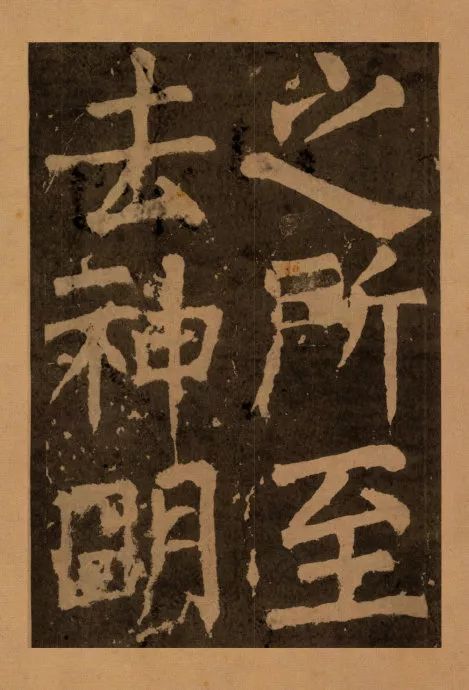 之所至
去神明